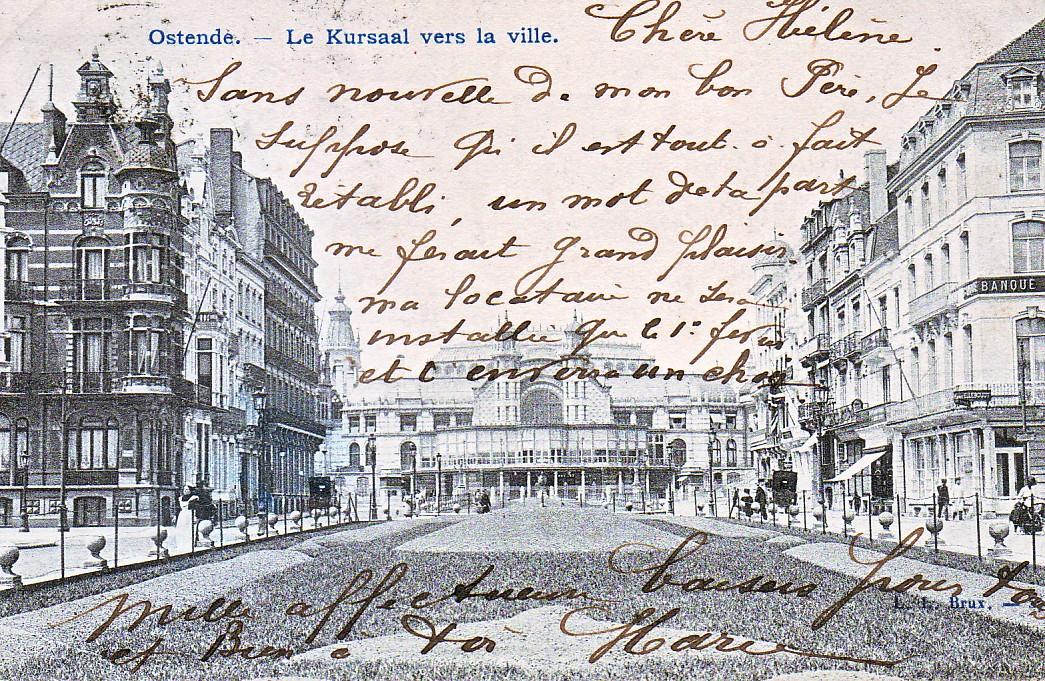 Ostende. — Le Kursaal vers la ville.
Chère Hélène.
Sans nouvelle de mon bon Père, Je
suppose qu'il est tout à fait
rétabli, un mot de ta part
me ferait grand plaisir.
ma locataire ne sera
installée que le 1er
et t'enverra un
BANQUE
Mille affectueux baisers pour
L. L. Brux. —
et Bien à toi Marie